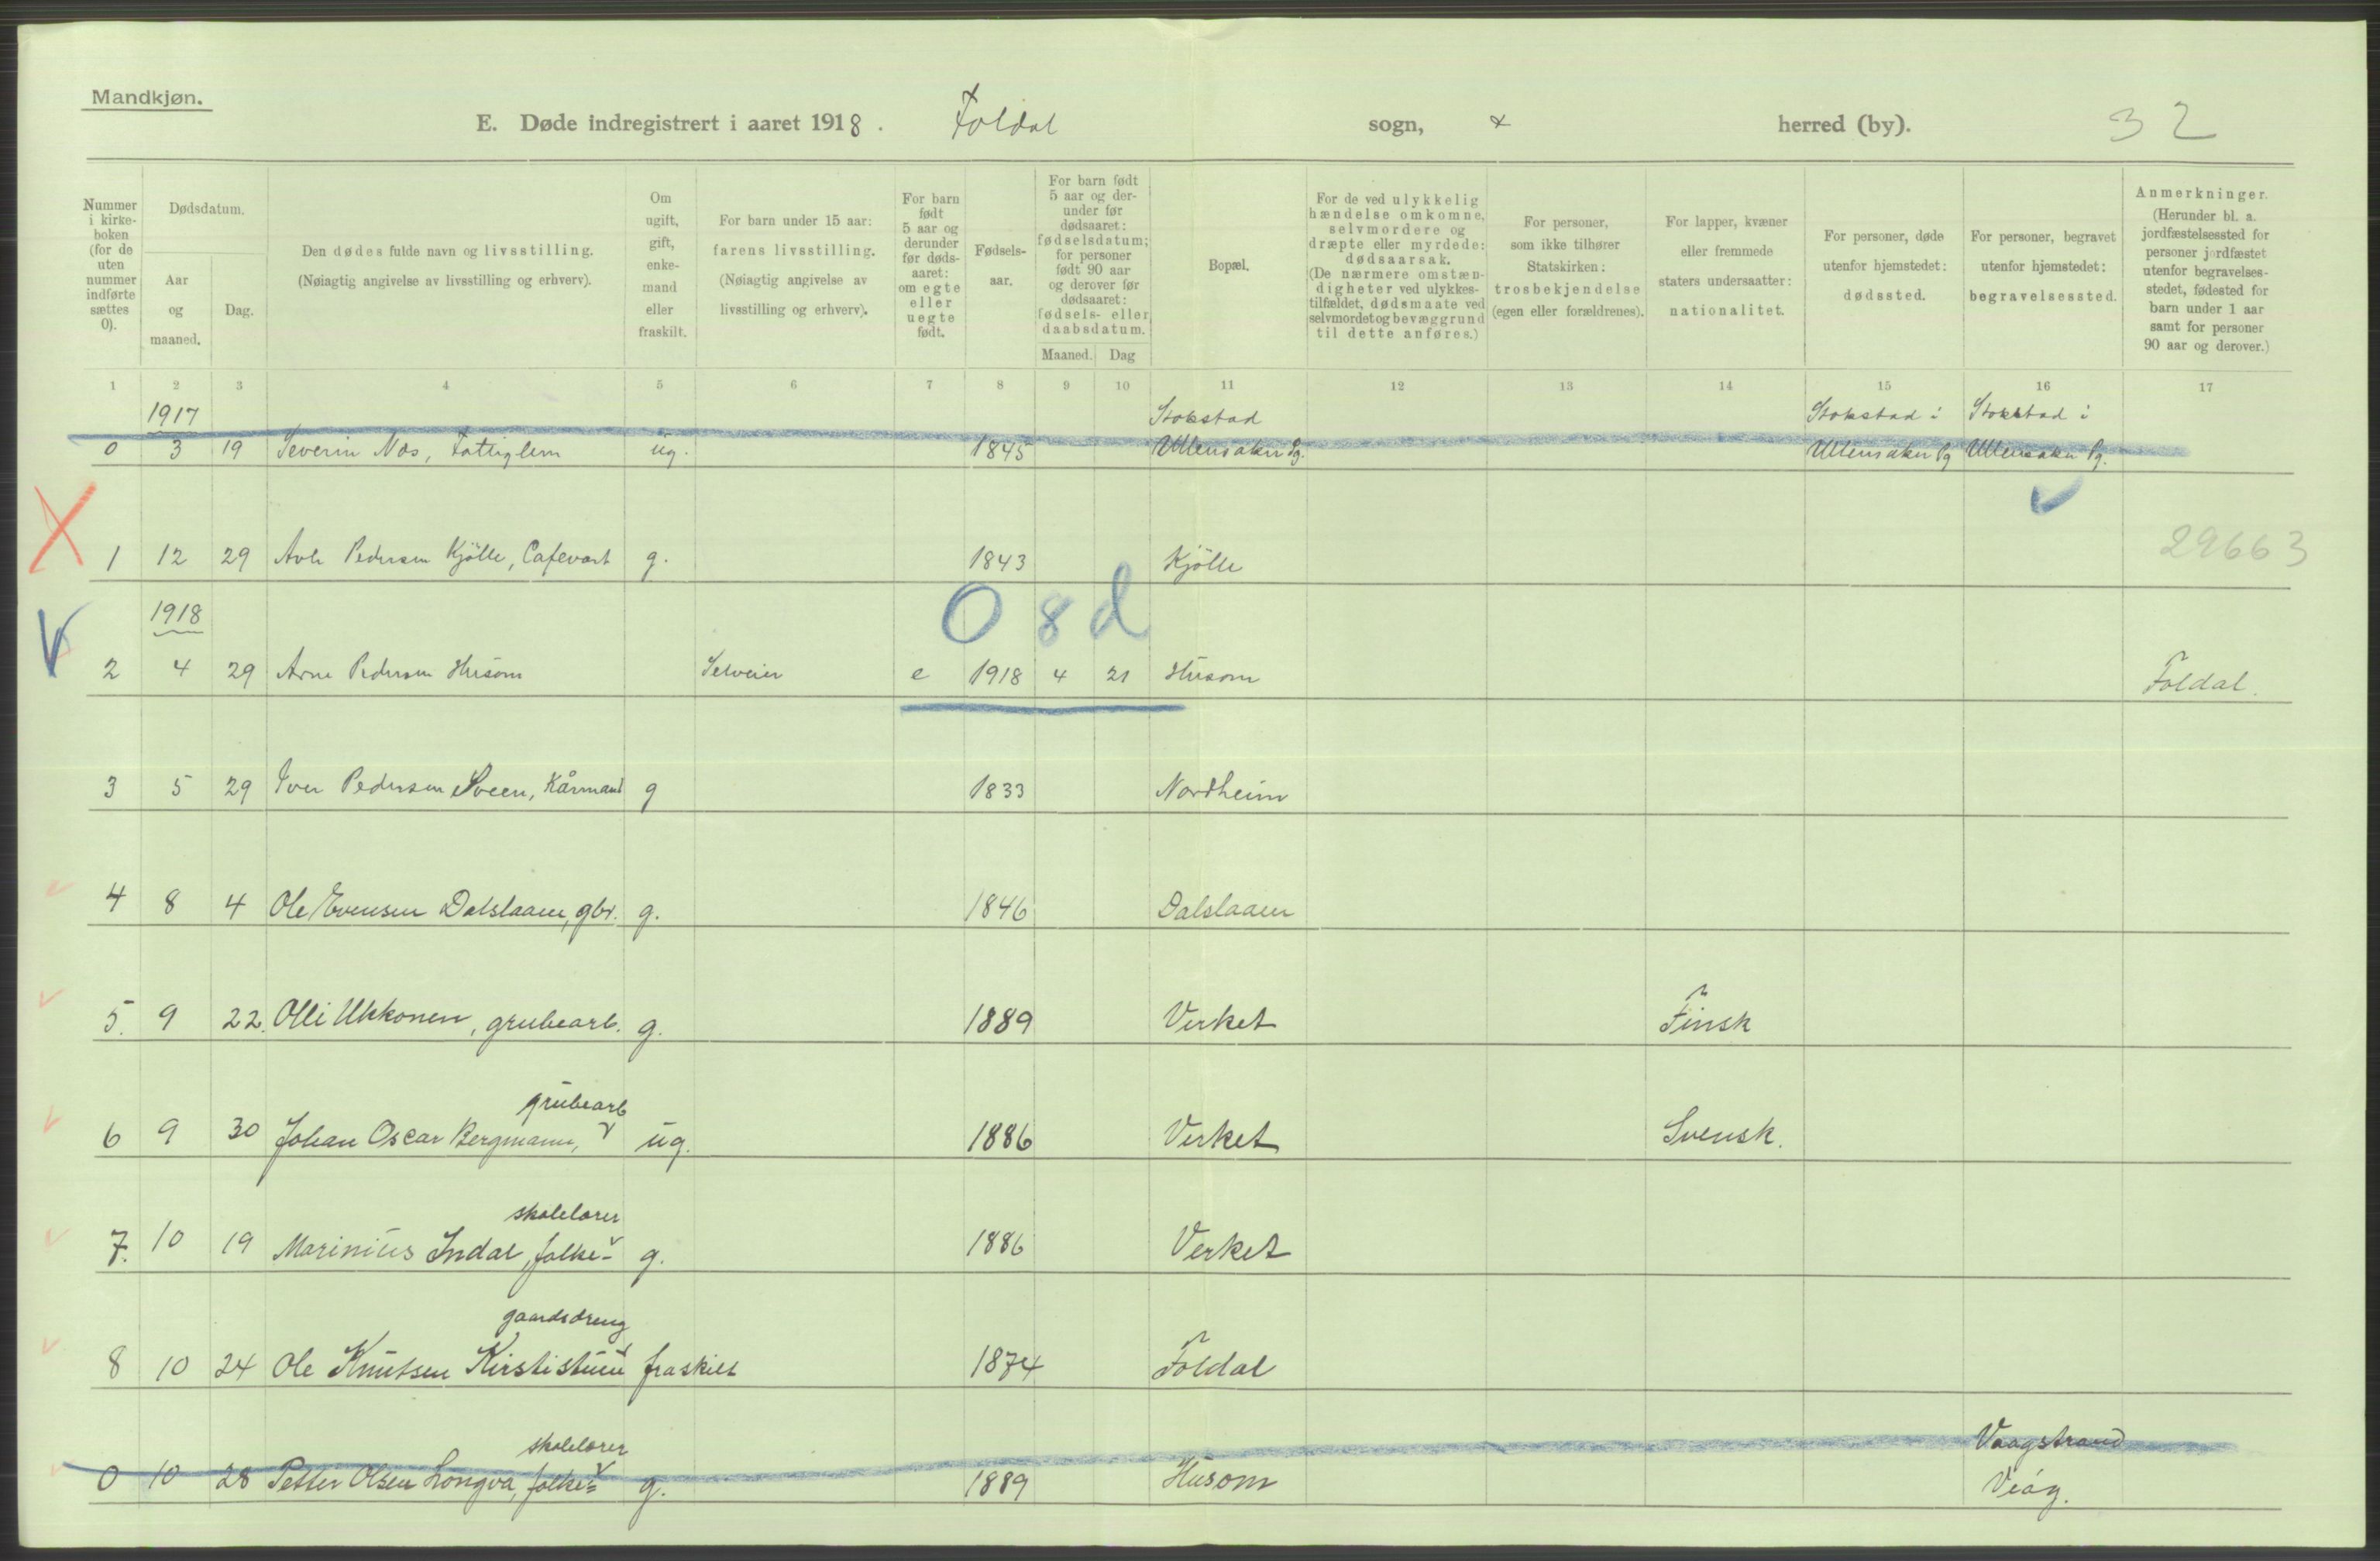 Mandkjøn.
E. Døde indregistrert i aaret 1918. Foldal sogn, herred (by). 32
Nummer i kirkeboken (for de uten nummer indførte sættes 0).
Dødsdatum.
Aar og maaned.
Dag.
Den dødes fulde navn og livsstilling.
(Nøiagtig angivelse av livsstilling og erhverv).
Om ugift, gift, enkemand eller fraskilt.
For barn under 15 aar: farens livsstilling.
(Nøiagtig angivelse av livsstilling og erhverv).
For barn født 5 aar og derunder før dødsaaret: om egte eller uegte født.
Fødselsaar.
For barn født 5 aar og derunder før dødsaaret: fødselsdatum; for personer født 90 aar og derover før dødsaaret: fødsels- eller daabsdatum.
Maaned. Dag
Bopæl.
For de ved ulykkelig hændelse omkomne, selvmordere og dræpte eller myrdede: dødsaarsak.
(De nærmere omstændigheter ved ulykkestilfældet, dødsmaate ved selvmordet og bevæggrund til dette anføres.)
For personer, som ikke tilhører Statskirken: trosbekjendelse (egen eller forældrenes).
For lapper, kvæner eller fremmede staters undersaatter: nationalitet.
For personer, døde utenfor hjemstedet: dødssted.
For personer, begravet utenfor hjemstedet: begravelsessted.
Anmerkninger.
(Herunder bl. a. jordfæstelsessted for personer jordfæstet utenfor begravelsesstedet, fødested for barn under 1 aar samt for personer 90 aar og derover.)
1 2 3 4 5 6 7 8 9 10 11 12 13 14 15 16 17
1917 Stokstad Stokstad i Stokstad i
0 3 19 Severin Næs, Fattiglem ug. 1845 Ullensaker Pg. Ullensaker Pg Ullensaker Pg.
1 12 29 Avle Pedersen Kjölle, Cafevært g. 1843 Kjölle 29663
1918 0 8 d
2 4 29 Arne Pedersen Husom Selveier e 1918 4 21 Husom Foldal.
3 5 29 Iver Pedersen Sveen, Kårmand g 1833 Nordheim
4 8 4 Ole Evensen Dalslaaen, gbr. g. 1846 Dalslaaen
5. 9 22. Olli Ukkonen, grubearb. g. 1889 Verket Finsk
grubearb
6 9 30 Johan Oscar Bergmann, ug. 1886 Verket Svensk.
skolelærer
7. 10 19 Marinius Indal, folke- g. 1886 Verket
gaardsdreng
8 10 24 Ole Knutsen Kirstistuen fraskilt 1874 Foldal
skolelærer Vaagstrand
0 10 28 Petter Olsen Longva, folke- g. 1889 Husom Veøy.